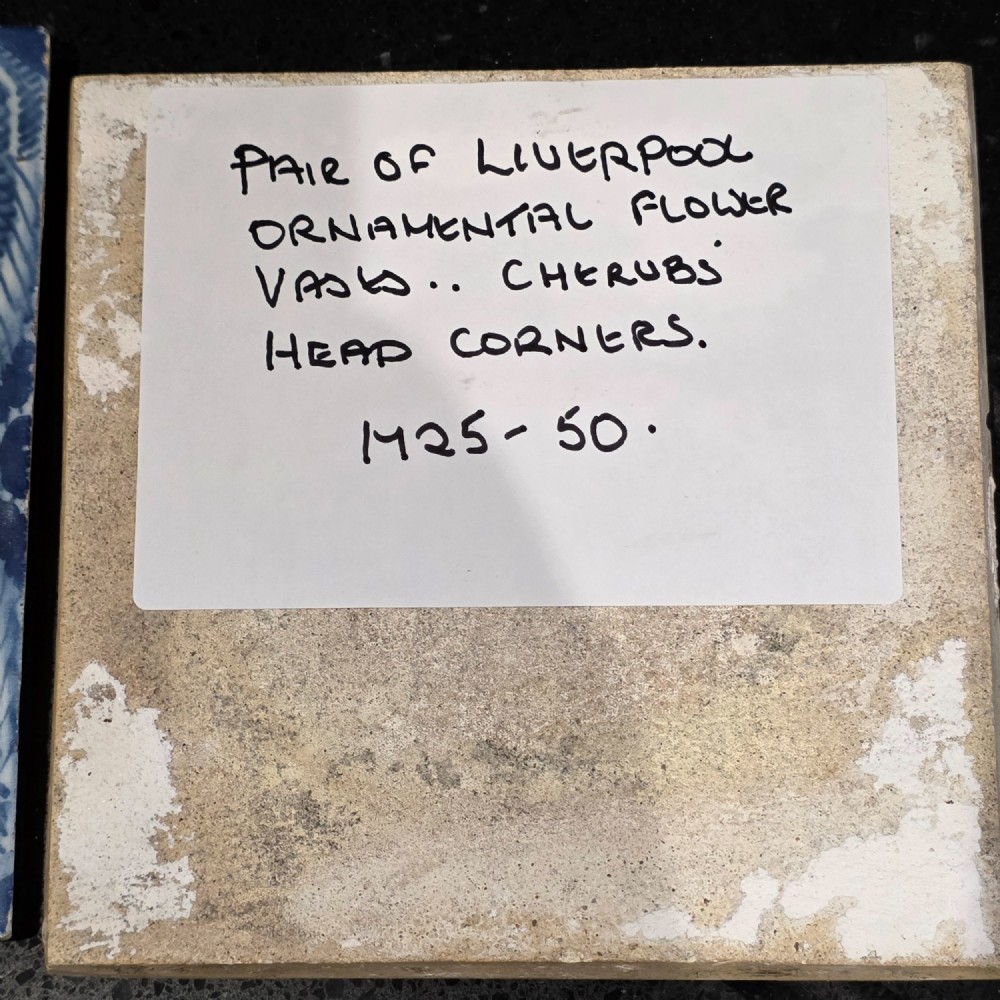 PAIR OF LIVERPOOL
ORNAMENTAL FLOWER
VASES.. CHERUBS'
HEAD CORNERS.
1725-50.